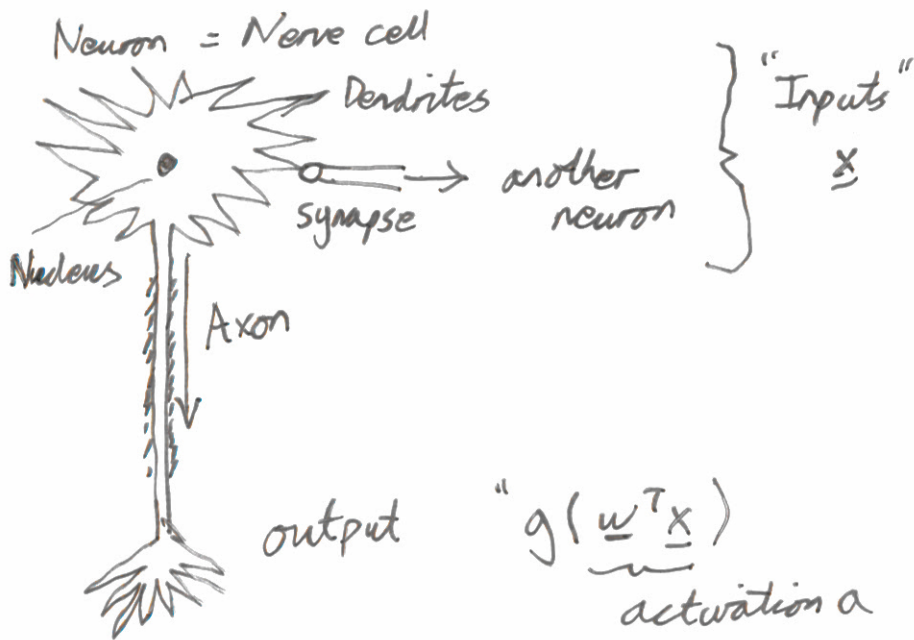 Neuron = Nerve cell
Dendrites
"Inputs"
x
another
neuron
synapse
Nucleus
Axon
output "g( wᵀ x )
activation a